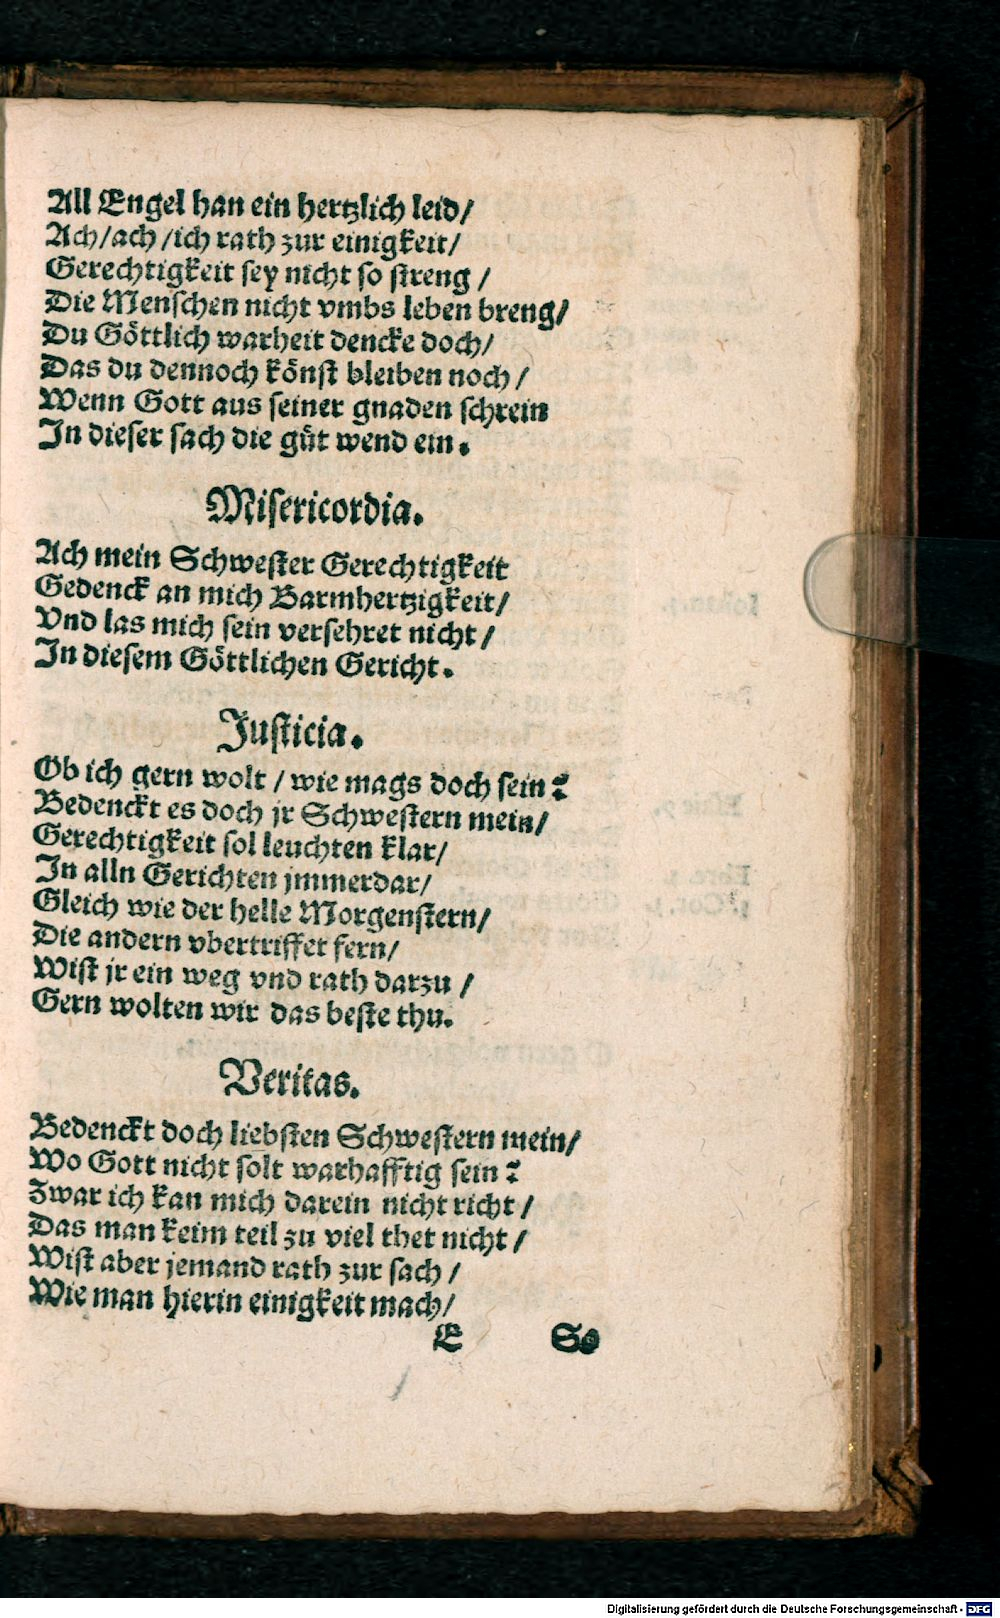 All Engel han ein hertzlich leid/
Ach/ach/ich rath zur einigkeit/
Gerechtigkeit sey nicht so streng/
Die Menschen nicht vmbs leben breng/
Du Göttlich warheit dencke doch/
Das du dennoch könst bleiben noch/
Wenn Gott aus seiner gnaden schrein
In dieser sach die güt wend ein.
Misericordia.
Ach mein Schwester Gerechtigkeit
Gedenck an mich Barmhertzigkeit/
Vnd las mich sein versehret nicht/
In diesem Göttlichen Gericht.
Justicia.
Ob ich gern wolt/wie mags doch sein?
Bedenckt es doch jr Schwestern mein/
Gerechtigkeit sol leuchten klar/
In alln Gerichten jmmerdar/
Gleich wie der helle Morgenstern/
Die andern vbertriffet fern/
Wist jr ein weg vnd rath darzu/
Gern wolten wir das beste thu.
Veritas.
Bedenckt doch liebsten Schwestern mein/
Wo Gott nicht solt warhafftig sein?
Zwar ich kan mich darein nicht richt/
Das man keim teil zu viel thet nicht/
Wist aber jemand rath zur sach/
Wie man hierin einigkeit mach/
E So
Digitalisierung gefördert durch die Deutsche Forschungsgemeinschaft - DFG